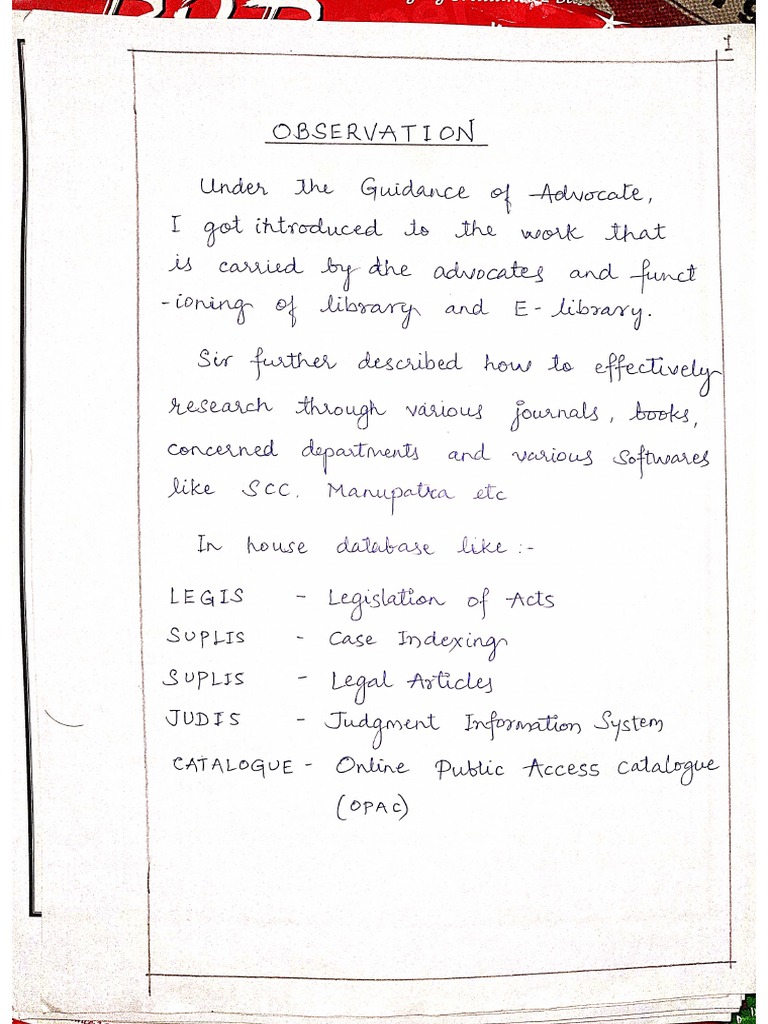 1
OBSERVATION
Under the Guidance of Advocate,
I got introduced to the work that
is carried by the advocates and funct
-ioning of library and E-library.
Sir further described how to effectively
research through various journals, books,
concerned departments and various softwares
like SCC. Manupatra etc
In house database like :-
LEGIS - Legislation of Acts
SUPLIS - Case Indexing
SUPLIS - Legal Articles
JUDIS - Judgment Information System
CATALOGUE - Online Public Access Catalogue
(OPAC)